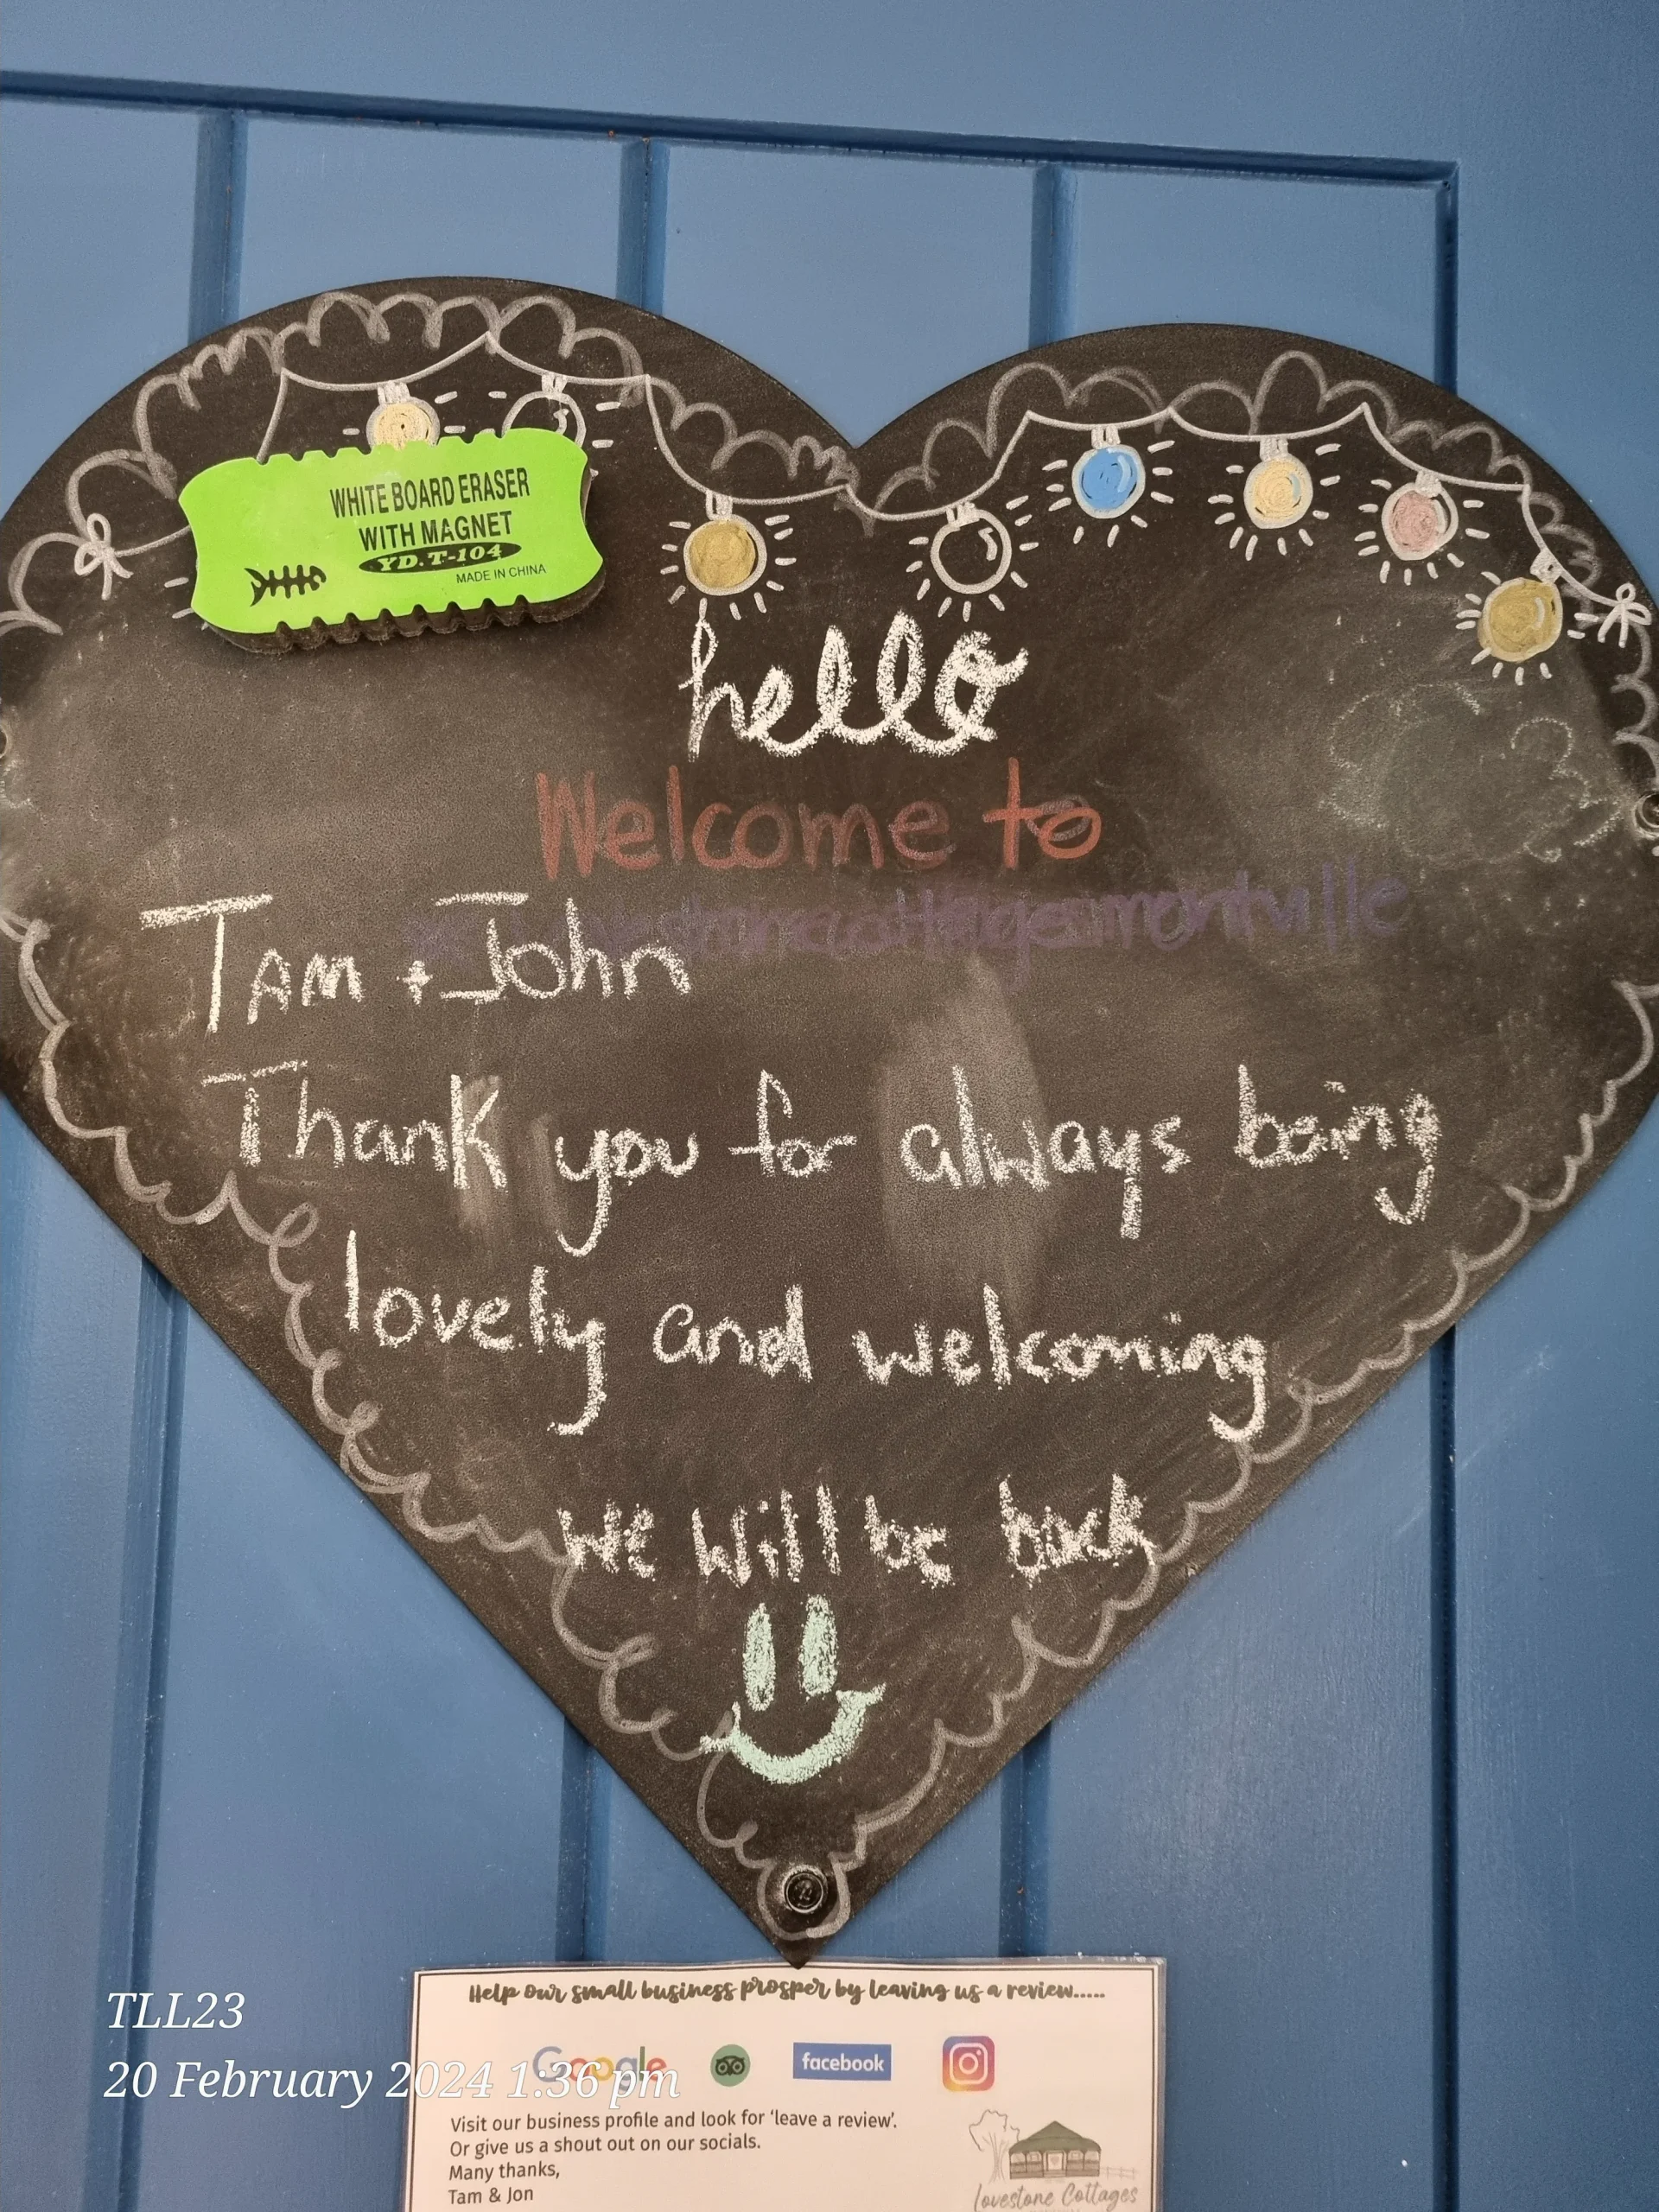 WHITE BOARD ERASER
WITH MAGNET
YD.T-104
MADE IN CHINA
hello
Welcome to
cottages montville
TAM + John
Thank you for always being
lovely and welcoming
we will be back
Help our small business prosper by leaving us a review.....
Google
facebook
Visit our business profile and look for 'leave a review'.
Or give us a shout out on our socials.
Many thanks,
Tam & Jon
Lovestone Cottages
TLL23
20 February 2024 1:36 pm